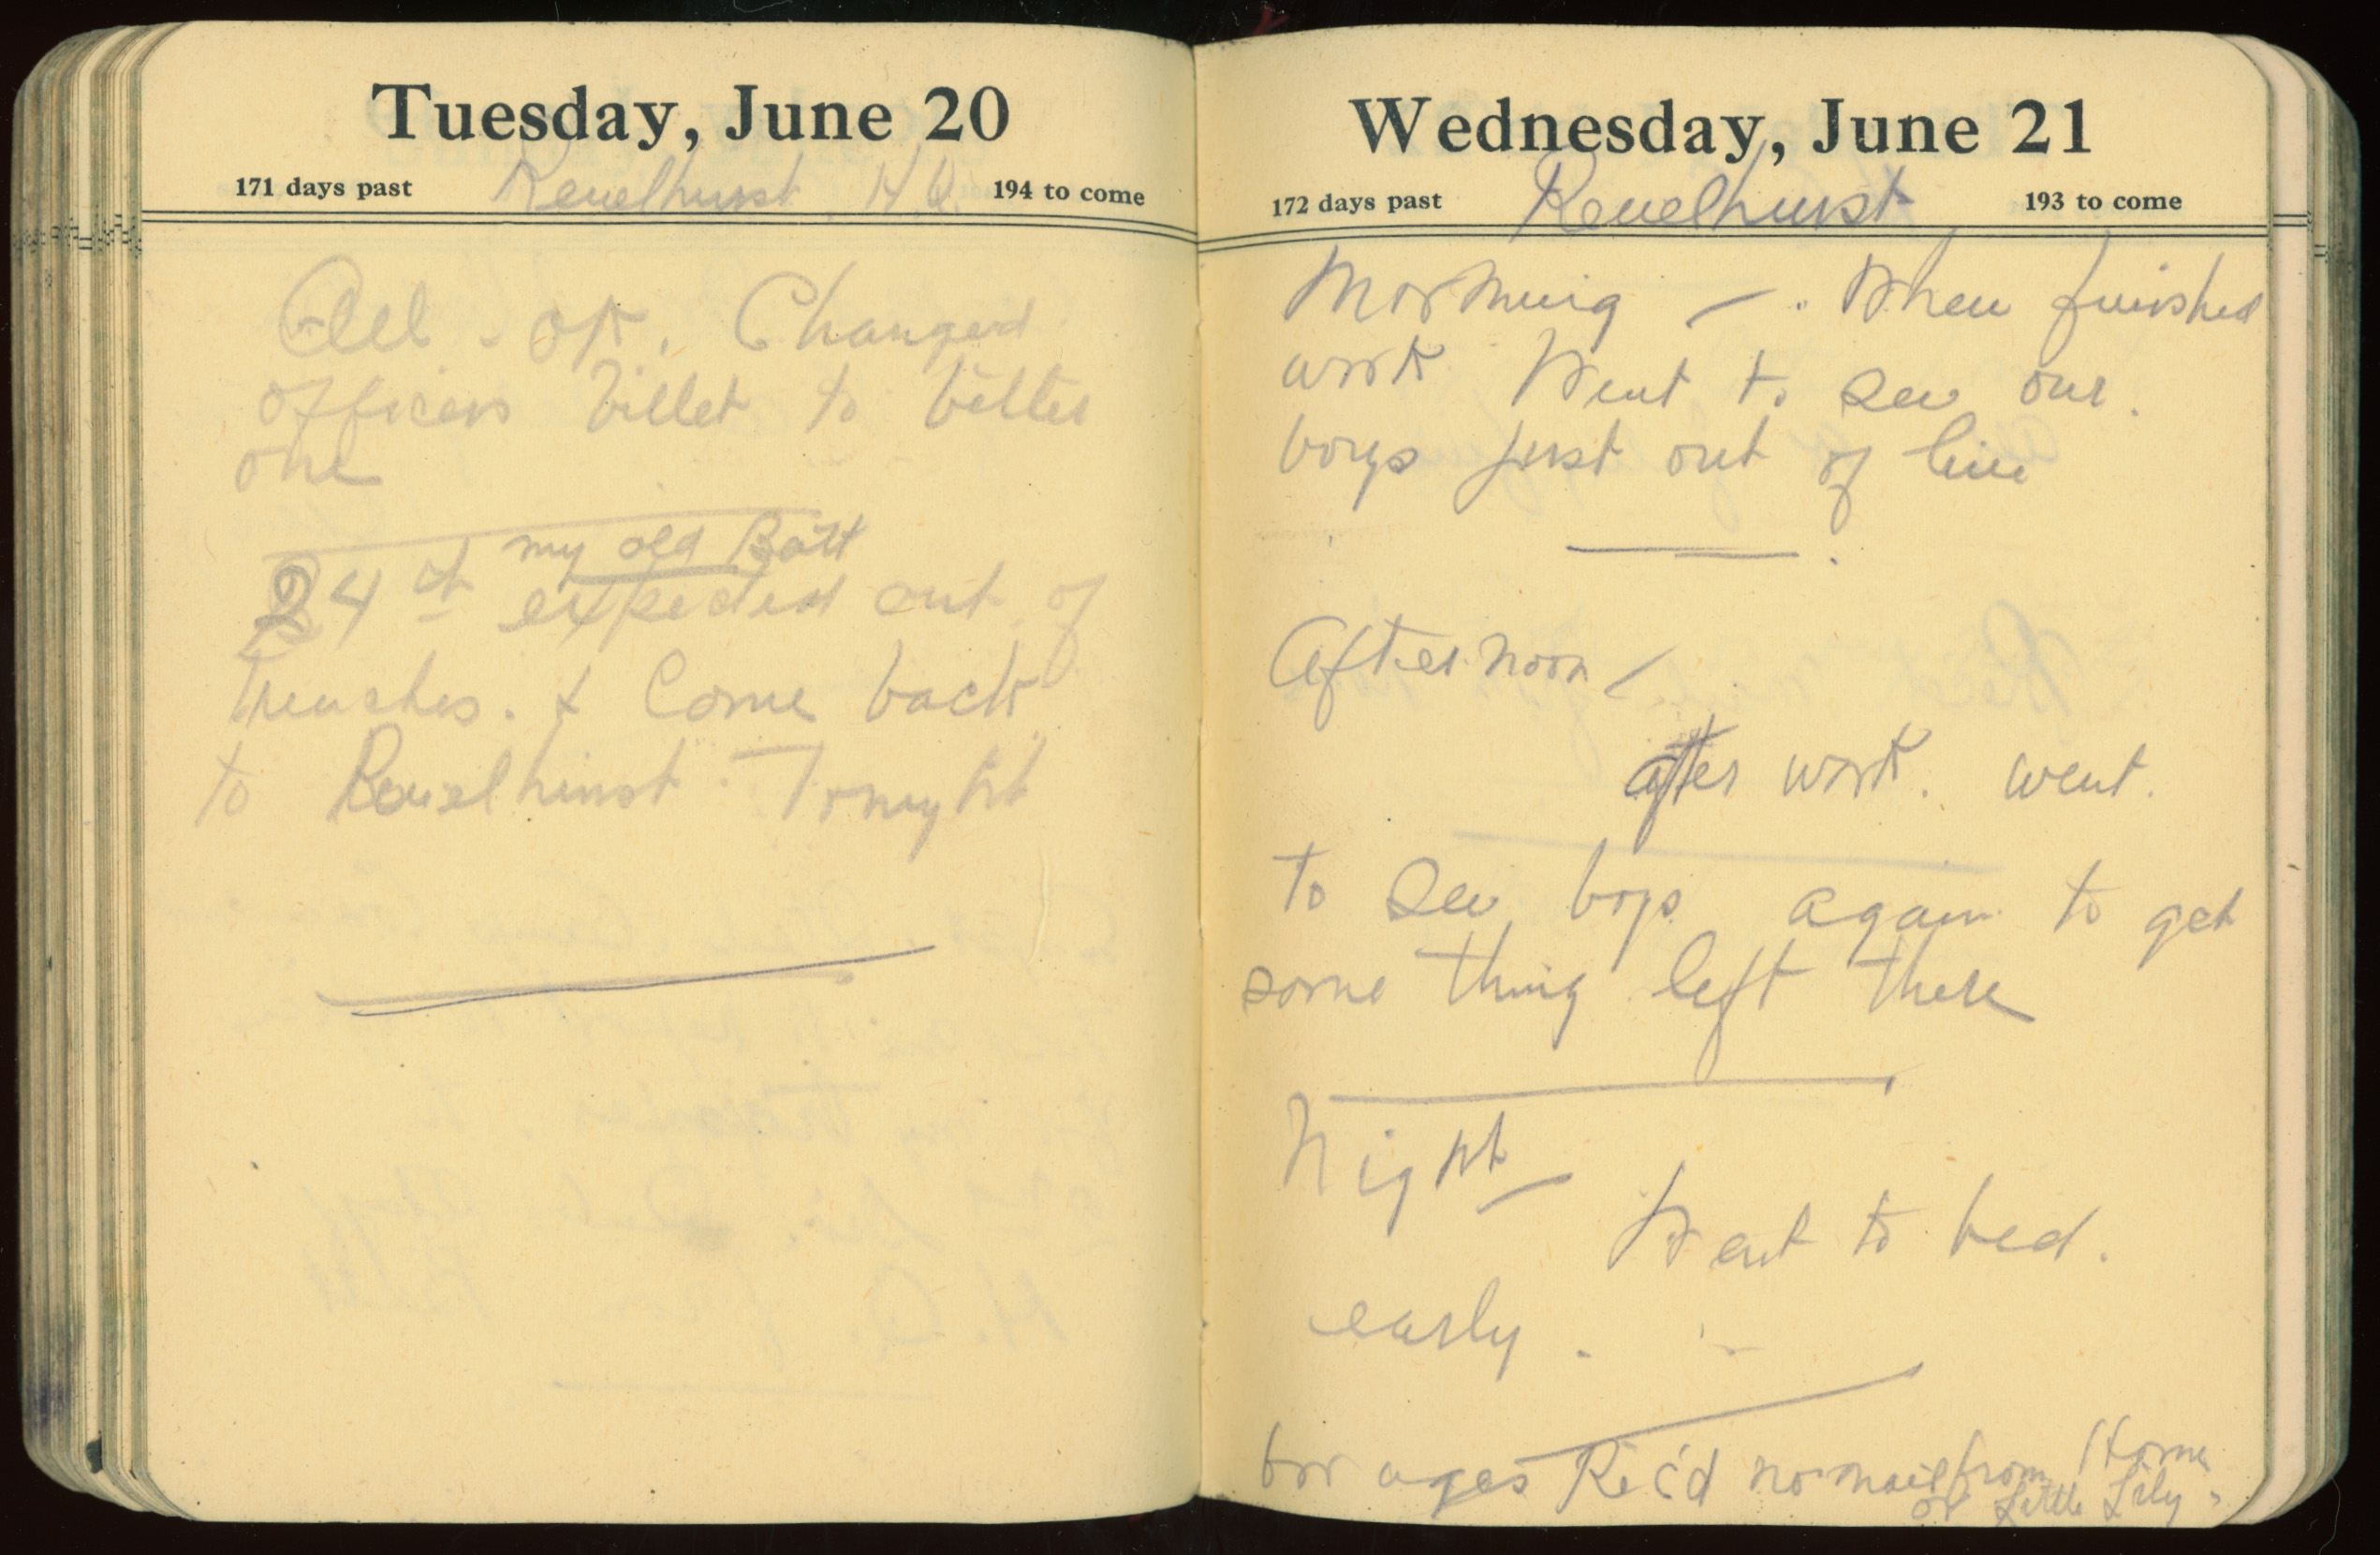 Tuesday, June 20
171 days past Renelhurst. H.Q. 194 to come
All - OK. Changed
officers billet to better
one
my old Batt
24th expected out of
trenches. & Come back
to Renelhurst. Tonight
Wednesday, June 21
172 days past Renelhurst 193 to come
Morning - . When finished
work Went to see our.
boys just out of line
Afternoon /
after work. went.
to see boys again to get
some thing left there
Night -
Went to bed.
early.
for ages Rec'd no mail from Home
or Little Lily.